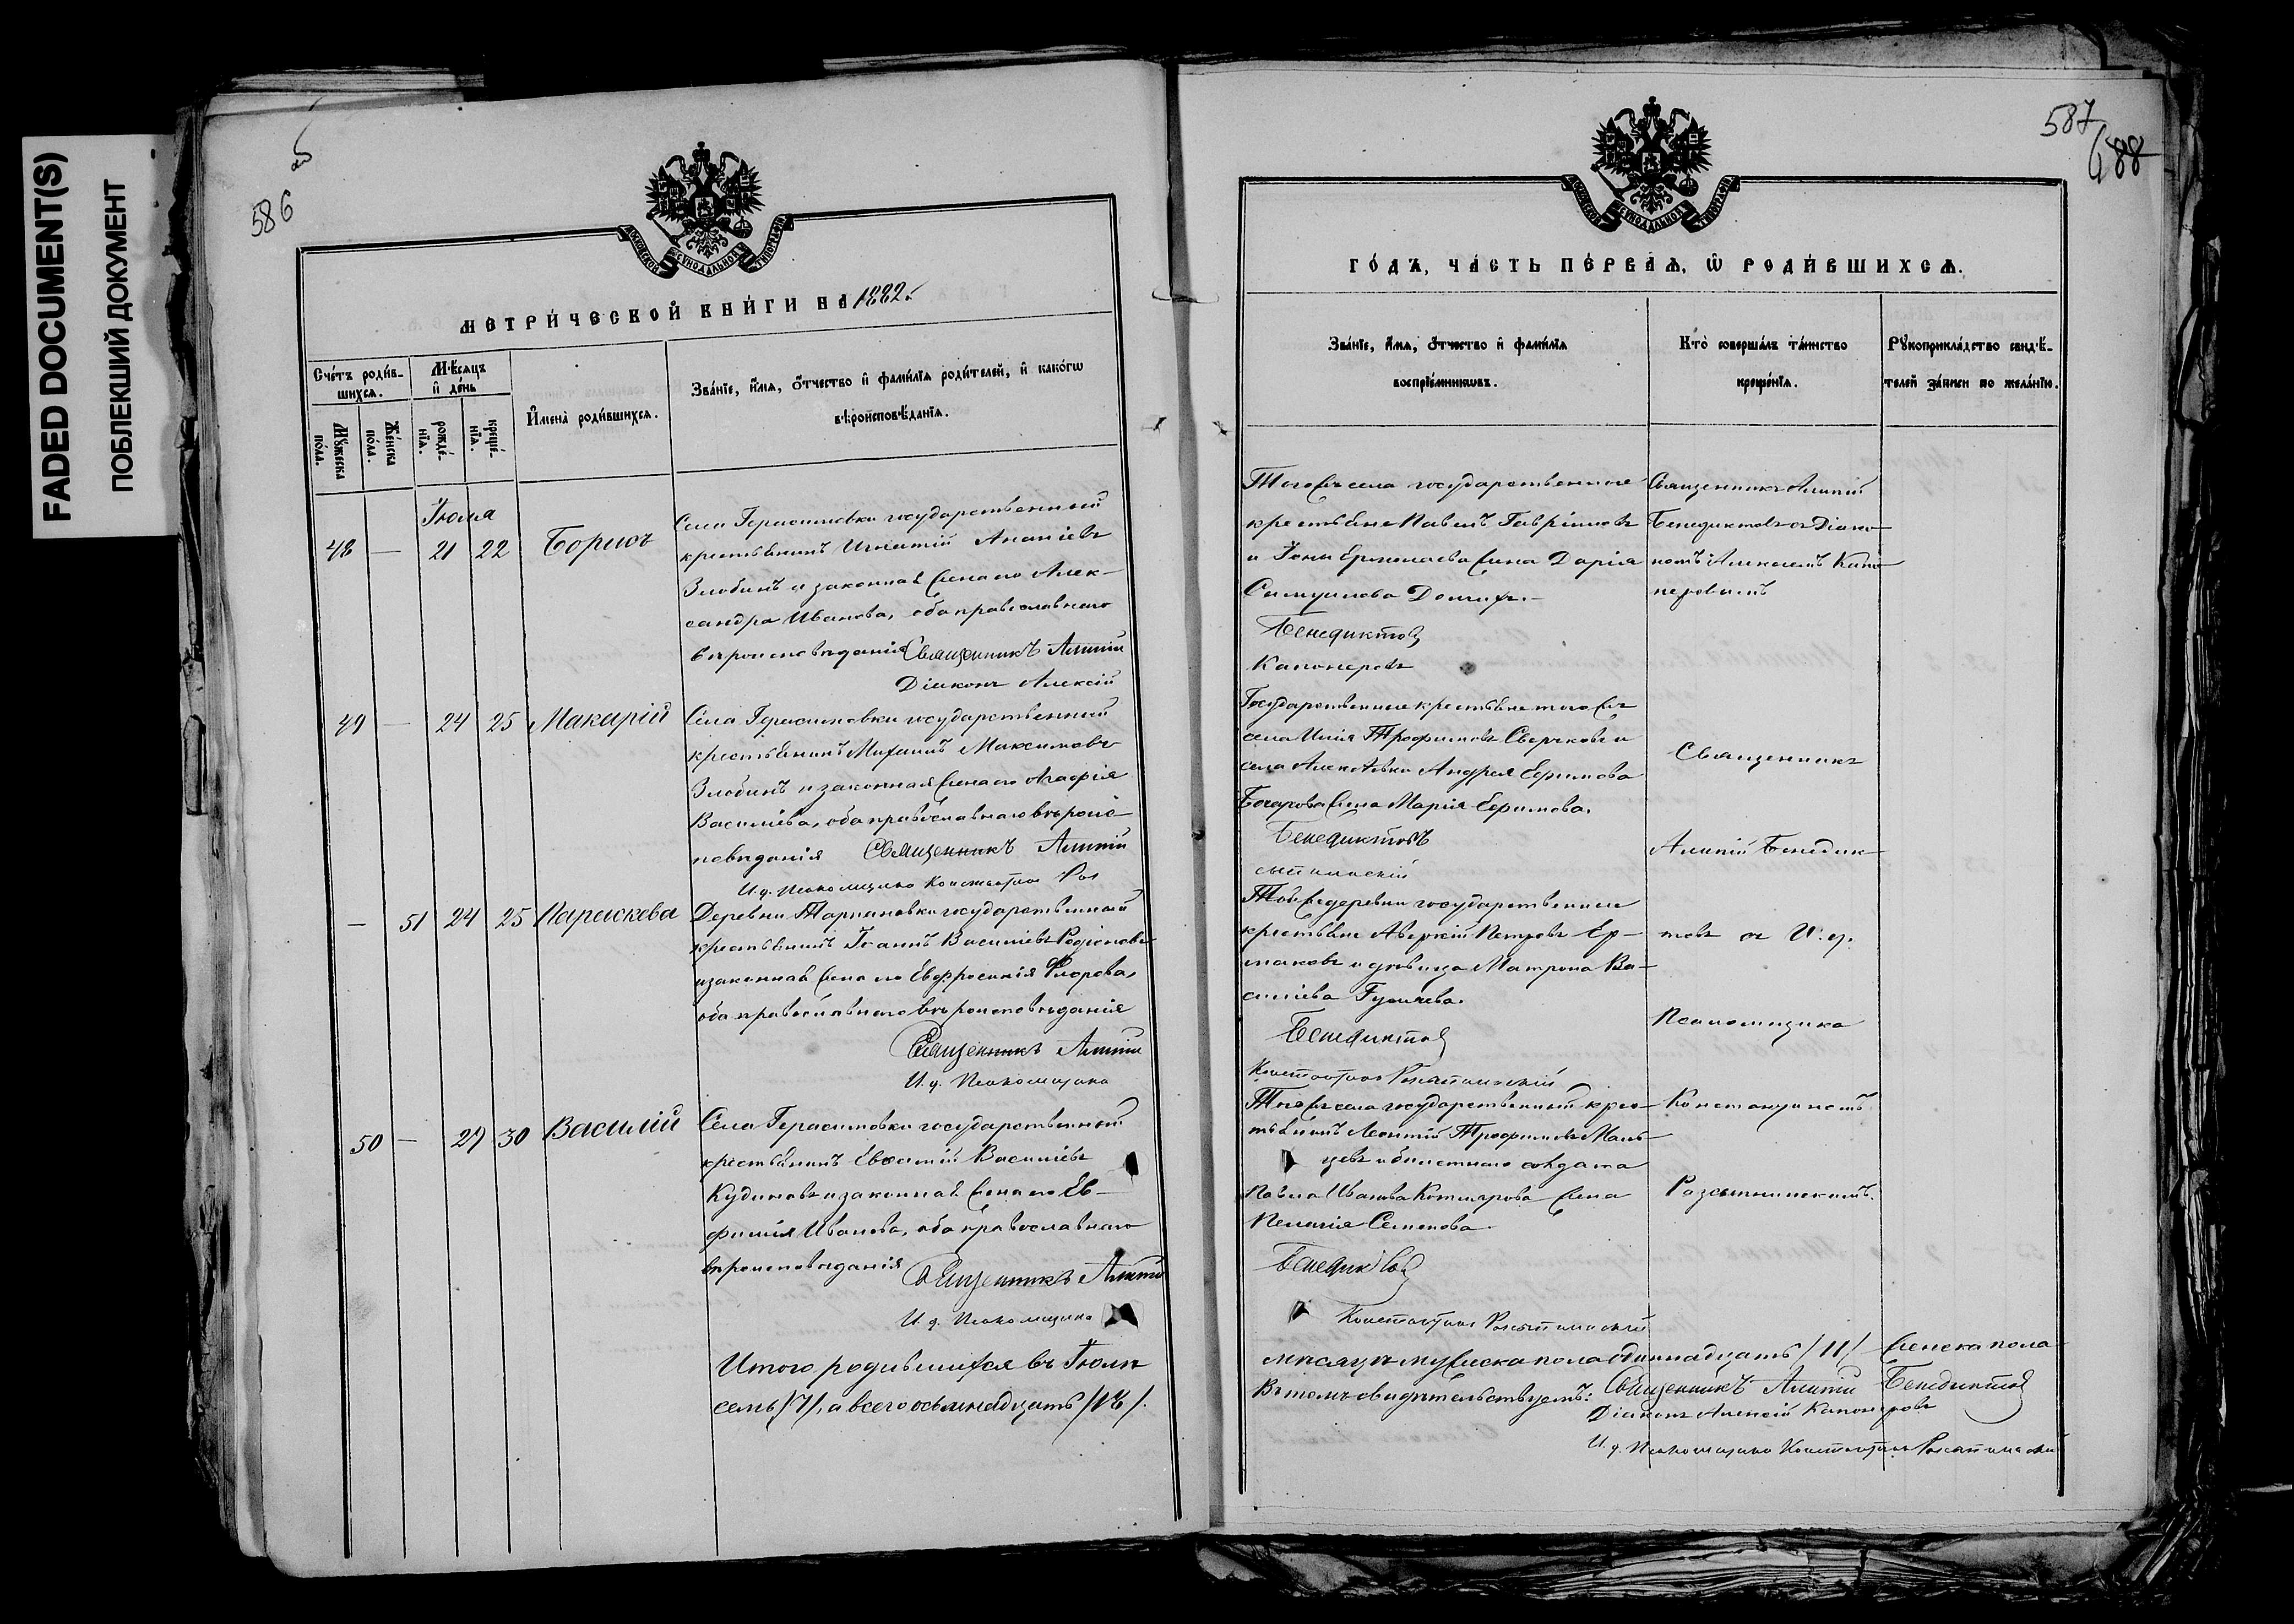 FADED DOCUMENT(S)
ПОБЛЕКШИЙ ДОКУМЕНТ
586
об
МОСКОВСКОЙ СѴНОДАЛЬНОЙ ТИПОГРАФІИ
МЕТРИ́ЧЕСКОЙ КНИ́ГИ НА 1882.
Сче́тъ роди́в-
шихся.
Мꙋ́жеска по́ла.
Же́нска по́ла.
Мѣ́сяцъ и҆ де́нь
рожде́-нїя.
креще́-нїя.
И҆мена̀ роди́вшихся.
Зва́нїе, и҆́мя, ѻ҆́тчество и҆ фами́лїя роди́телей, и҆ како́гѡ
вѣроисповѣ́данїя.
Іюля
48 — 21 22 Борисъ
Села Герасимовки государственный
крестьянинъ Игнатій Ананіевъ
Злобинъ и законная жена его Алек-
сандра Иванова, оба православнаго
вѣроисповѣданія Священникъ Алипій
Діаконъ Алексій
49 — 24 25 Макарій
Села Герасимовки государственный
крестьянинъ Михаилъ Максимовъ
Злобинъ и законная жена его Агафія
Василіева, оба православнаго вѣроис-
повѣданія Священникъ Алипій
И. д. Псаломщика Константинъ Раз
— 51 24 25 Параскева
Деревни государственный
крестьянинъ Іоаннъ Василіевъ Родіоновъ
и законная жена его Евфросинія Флорова,
оба православнаго вѣроисповѣданія
Священникъ Алипій
И. д. Псаломщика
50 — 27 30 Василій
Села Герасимовки государственный
крестьянинъ Евѳимій Василіевъ
Кудиновъ и законная жена его Ев-
фимія Иванова, оба православнаго
вѣроисповѣданія Священникъ Алипій
И. д. Псаломщика
Итого родившихся въ Іюлѣ
семь /7/, а всего осьмнадцать /18/.
587
688
МОСКОВСКОЙ СѴНОДАЛЬНОЙ ТИПОГРАФІИ
ГО́ДЪ, ЧА́СТЬ ПЕ́РВАЯ, Ѡ҆ РОДИ́ВШИХСЯ.
Зва́нїе, и҆́мя, ѻ҆́тчество и҆ фами́лїя
воспрїе́мникѡвъ.
Кто̀ соверша́лъ та́инство
креще́нїя.
Рꙋкоприкла́дство свидѣ́-
телей за́писи по жела́нїю.
Тогоже села государственные
крестьяне Павелъ Гавріиловъ
и Іоны Ермолаева жена Дарія
Самуилова
Бенедиктовъ
Капонеровъ
Священникъ Алипій
Бенедиктовъ съ Діако-
номъ Алексіемъ Капо-
неровымъ
Государственные крестьяне тогоже
села Илія Трофимовъ Сверчковъ и
села Алексѣевки Андрея Ефимова
Бочарова жена Марія Ефимова.
Бенедиктовъ
сыпинскій
Священникъ
Алипій Бенедик-
Тойже деревни государственные
крестьяне Аверкій Петровъ Ер-
маковъ и дѣвица Матрона Ва-
силіева
Бенедиктовъ
Константинъ Разсыпинскій
товъ съ И. д.
Псаломщика
Тогоже села государственный крес-
тьянинъ Леонтій Трофимовъ Маль-
цевъ и билетнаго солдата
Павла Иванова Котлярова жена
Пелагія Семенова.
Бенедиктовъ
Константинъ Разсыпинскій
Константиномъ
Разсыпинскимъ.
мѣсяцѣ мужеска пола одиннадцать /11/ женска пола
Въ томъ свидѣтельствуемъ: Священникъ Алипій Бенедиктовъ
Діаконъ Алексій Капонеровъ
И. д. Псаломщика Константинъ Разсыпинскій